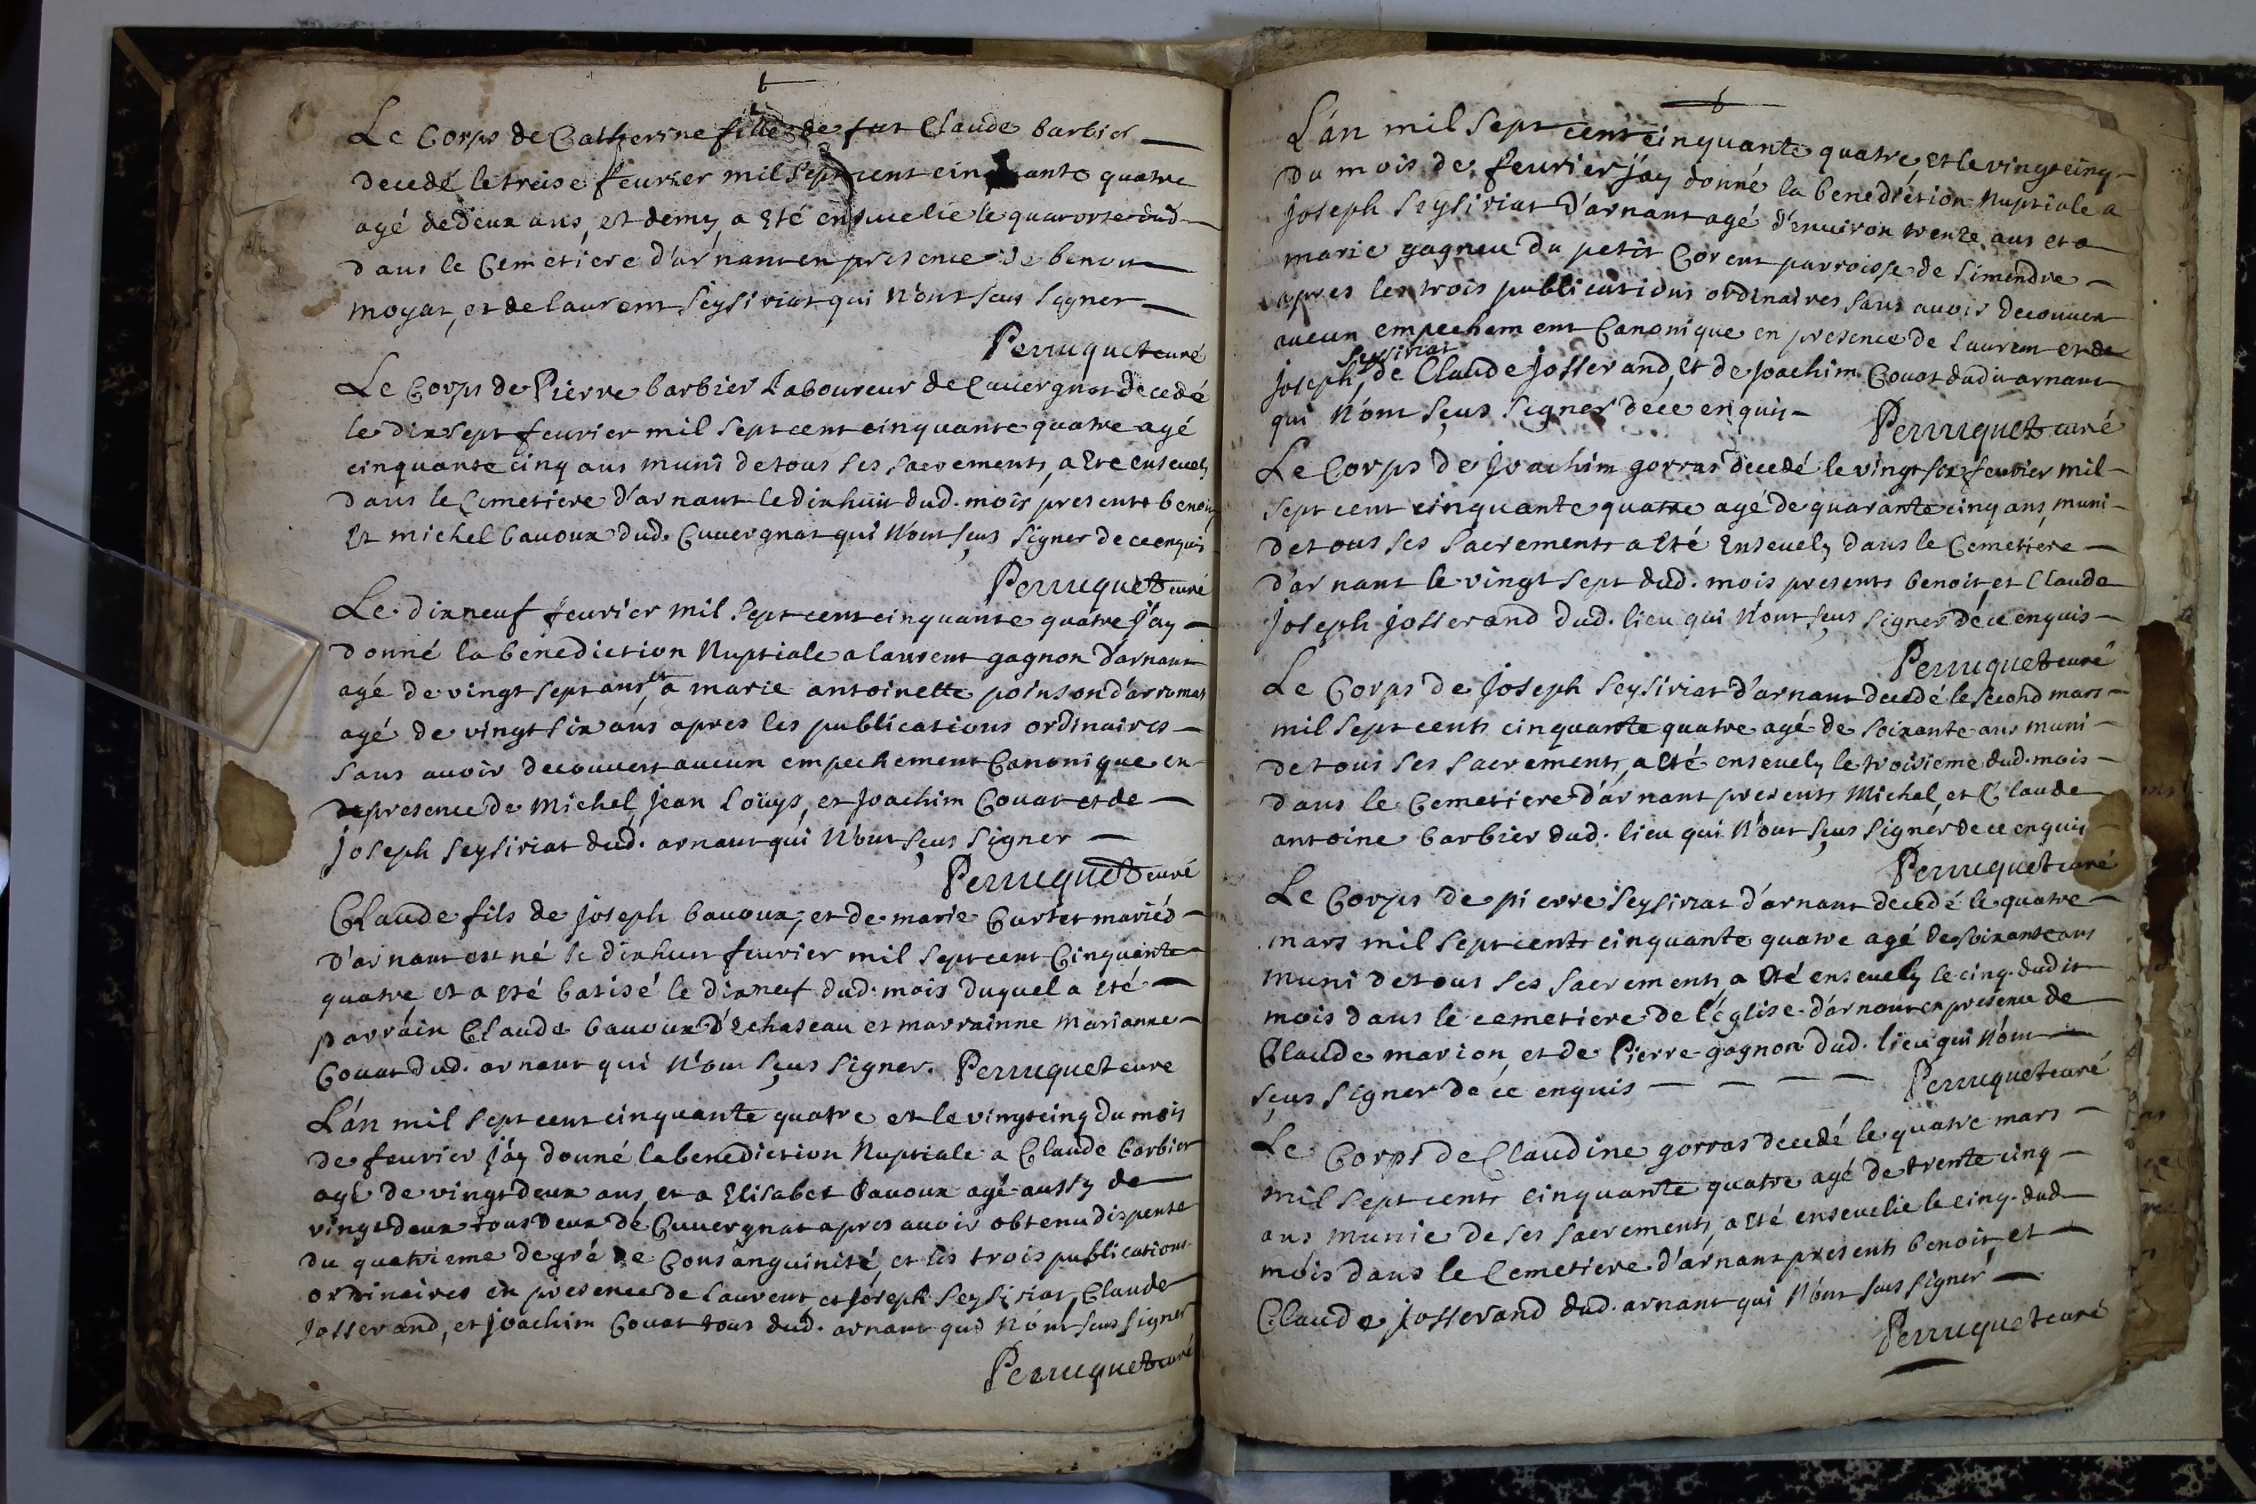 Le Corps de Catherine fille de fut Claude barbier
decedé le treise feurier mil sept cent cinquante quatre
agé de deux ans, et demy, a Eté enseuelie le quatorse dud
dans le Cemetiere d'arnant en presence de benoit
moyat, et de laurent seysiriat qui N'ont seus signer
Perruquet curé
Le Corps de Pierre barbier Laboureur de Cuuergnat decedé
le dix sept feurier mil sept cent cinquante quatre agé
cinquante cinq ans muni de tous ses sacrements, a Eté enseuely
dans le Cemetiere d'arnant le dix huit dud. mois presents benoit
Et michel bauoux dud. Cuuergnat qui N'ont sçus signer de ce enquis
Perruquet curé
Le dix neuf feurier mil sept cent cinquante quatre j'ay
donné la benediction Nuptiale a laurent gagnon d'arnant
agé de vingt sept ans et a marie antoinette poinson d'arromas
agé de vingt six ans apres les publications ordinaires
sans auoir decouuert aucun empechement Canonique en
presence de Michel, jean Loüys, et joachim Couat et de
joseph seysiriat dud. arnant qui N'ont sçus signer
Perruquet curé
Claude fils de joseph bauoux, et de marie Curtet mariéd
d'arnant est né le dix huit feurier mil sept cent Cinquante
quatre et a eté batisé le dix neuf dud. mois duquel a eté
parrain Claude bauoux d'Echaseau et marrainne Marianne
Couat dud. arnant qui N'ont sçus signer. Perruquet curé
L'an mil sept cent cinquante quatre et le vingt cinq du mois
de feurier j'ay donné la benediction Nuptiale a Claude barbier
agé de vingt deux ans, et a Elisabet bauoux agé aussy de
vingt deux tous deux de Cuuergnat apres auoir obtenu dispense
du quatrieme degré de Consanguinité, et les trois publications
ordinaires en presence de Laurent, et joseph seysiriat, Claude
josserand, et joachim Couat tous dud. arnant qui N'ont sçus signer
Perruquet curé
L'an mil sept cent cinquante quatre, et le vingt cinq
du mois de feurier j'ay donné la benediction Nuptiale a
joseph seysiriat d'arnant agé d'enuiron trente ans et a
marie gagneu du petit Corent parroisse de simendre
apres les trois publications ordinaires sans auoir decouuert
aucun empechement Canonique en presence de Laurent et de
joseph seysiriat, de Claude josserand, et de joachim Couat dudit arnant
qui N'ont sçus signer de ce enquis
Perruquet curé
Le Corps de joachim gorras decedé le vingt six feurier mil
sept cent cinquante quatre agé de quarante cinq ans, muni
de tous ses sacrements a eté Enseuely dans le Cemetiere
d'arnant le vingt sept dud. mois presents benoit, et Claude
joseph josserand dud. lieu qui N'ont sçus signer de ce enquis
Perruquet curé
Le Corps de joseph seysiriat d'arnant decedé le second mars
mil sept cents cinquante quatre agé de soixante ans muni
de tous ses sacrements, a eté enseuely le troisieme dud. mois
dans le Cemetiere d'arnant presents Michel, et Claude
antoine barbier dud. lieu qui N'ont sçus signer de ce enquis
Perruquet curé
Le Corps de pierre seysiriat d'arnant decedé le quatre
mars mil sept cents cinquante quatre agé de soixante ans
muni de tous ses sacrements a Eté enseuely le cinq. dudit
mois dans le cemetiere de l'église d'arnant en presence de
Claude marion, et de Pierre gagnon dud. lieu qui N'ont
sçus signer de ce enquis
Perruquet curé
Le Corps de Claudine gorras decedé le quatre mars
mil sept cents cinquante quatre agé de trente cinq
ans munie de ses sacrements, a eté enseuelie le cinq. dud
mois dans le Cemetiere d'arnant presents benoit, et
Claude josserand dud. arnant qui N'ont sçus signer
Perruquet curé